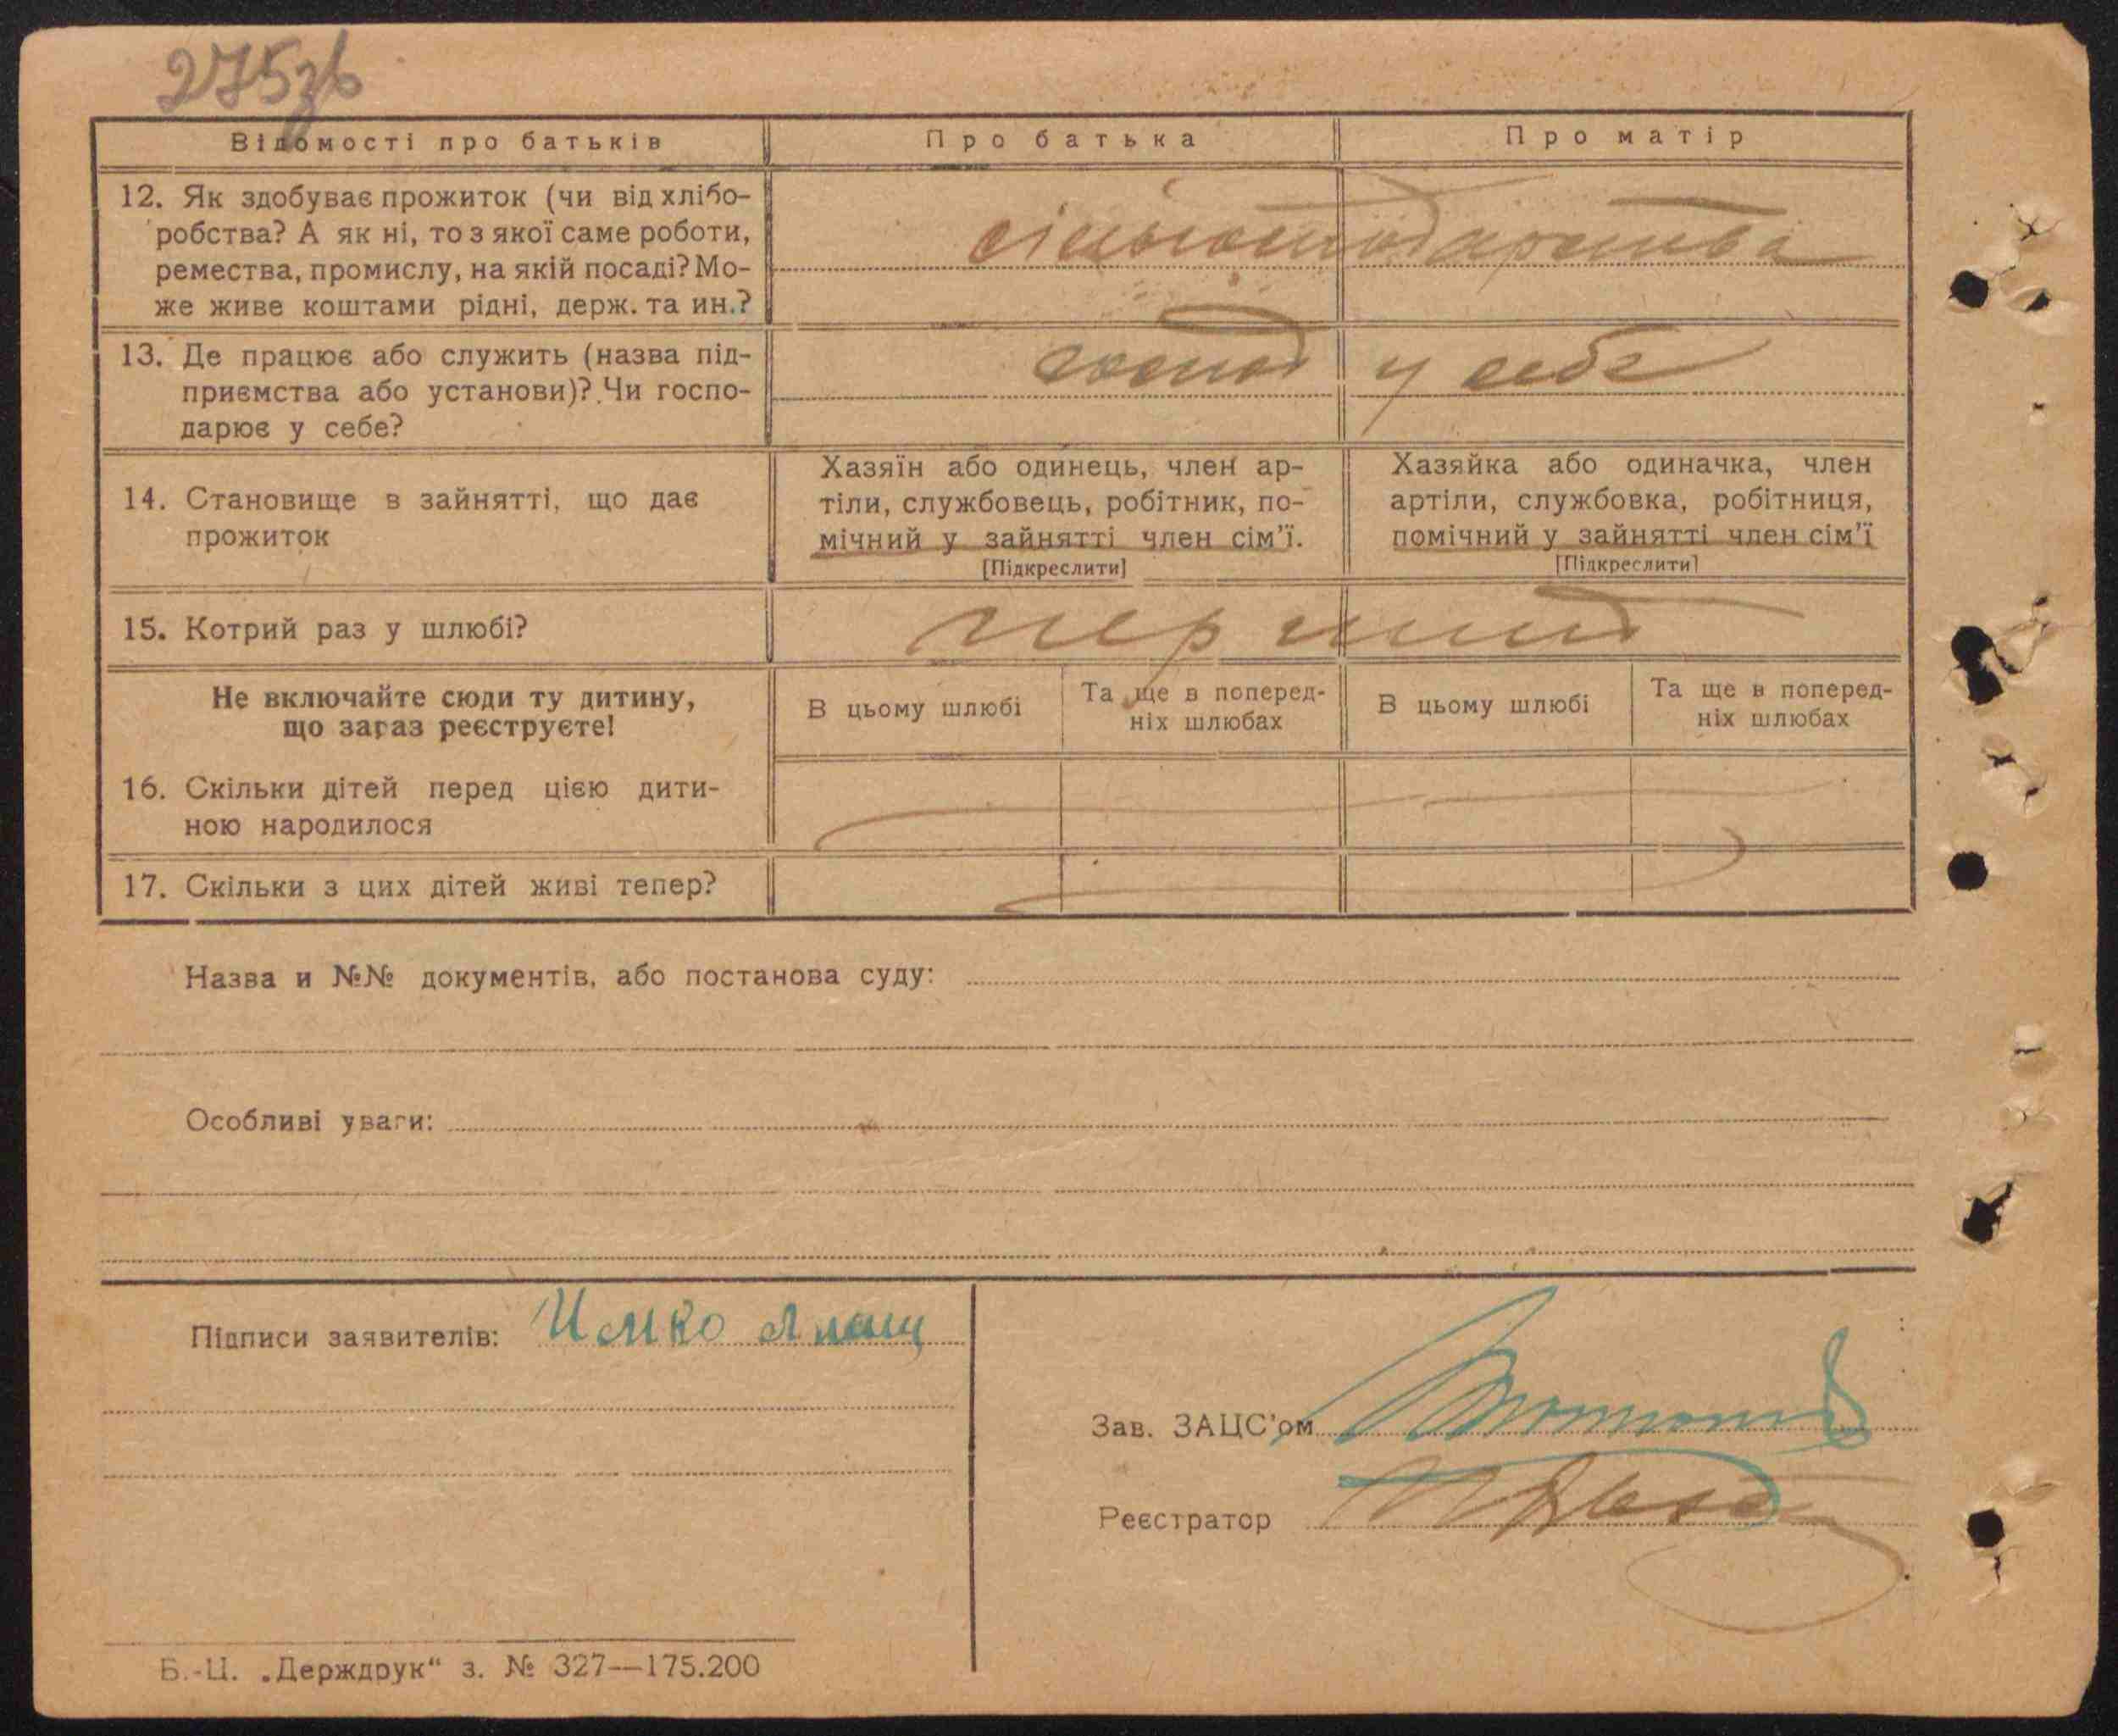 275зв
Відомості про батьків
Про батька
Про матір
12. Як здобуває прожиток (чи від хлібо-
робства? А як ні, то з якої саме роботи,
ремества, промислу, на якій посаді? Мо-
же живе коштами рідні, держ. та ин.?
13. Де працює або служить (назва під-
приємства або установи)? Чи госпо-
дарює у себе?
господ у себе
14. Становище в зайнятті, що дає
прожиток
Хазяїн або одинець, член ар-
тіли, службовець, робітник, по-
мічний у зайнятті член сім'ї.
[Підкреслити]
Хазяйка або одиначка, член
артіли, службовка, робітниця,
помічний у зайнятті член сім'ї
[Підкреслити]
15. Котрий раз у шлюбі?
перший
Не включайте сюди ту дитину,
що зараз реєструєте!
В цьому шлюбі
Та ще в поперед-
ніх шлюбах
В цьому шлюбі
Та ще в поперед-
ніх шлюбах
16. Скільки дітей перед цією дити-
ною народилося
17. Скільки з цих дітей живі тепер?
Назва и №№ документів, або постанова суду:
Особливі уваги:
Підписи заявителів:
Зав. ЗАЦС'ом
Реєстратор
Б.-Ц. „Держдрук“ з. № 327—175.200